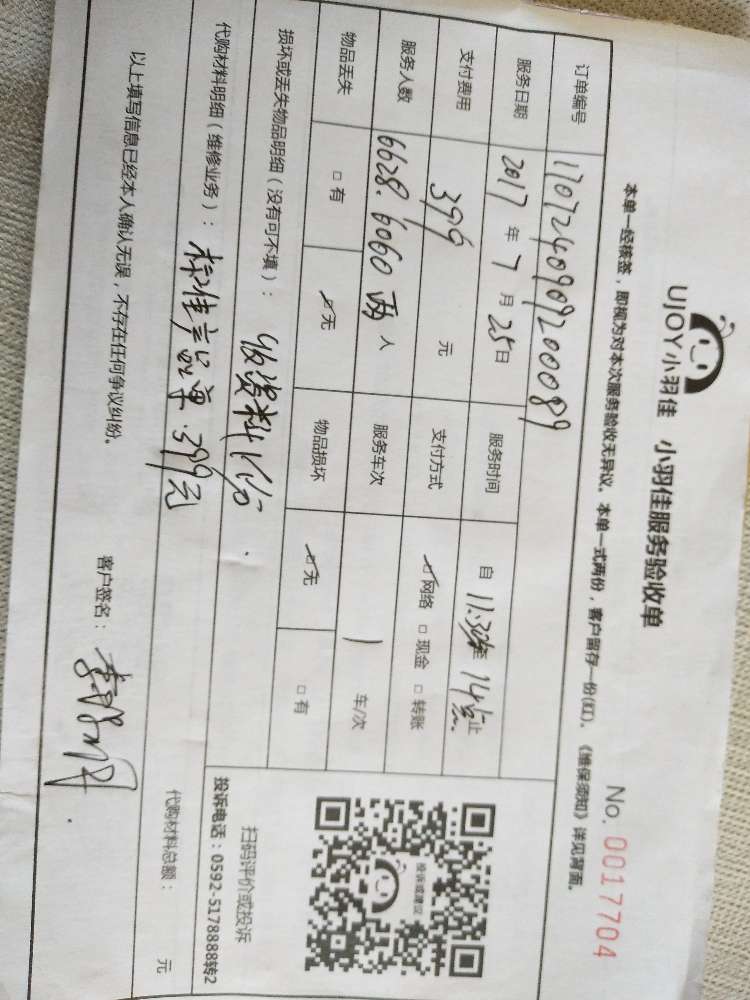 UJOY小羽佳 小羽佳服务验收单
No. 0017704
本单一经核签，即视为对本次服务验收无异议。本单一式两份，客户留存一份(红)。《维保须知》详见背面。
订单编号 17072409092000089
服务日期 2017 年 7 月 25 日 服务时间 自 11:30 至 14点 止
支付费用 399 元 支付方式 ☑网络 □现金 □转账
服务人数 6628.6060 两 人 服务车次 1 车/次
物品丢失 □有 ☑无 物品损坏 ☑无 □有
损坏或丢失物品明细（没有可不填）： 收资料1份.
代购材料明细（维修业务）： 标准产品单.399元
代购材料总额： 元
以上填写信息已经本人确认无误，不存在任何争议纠纷。
客户签名：
投诉或建议
扫码评价或投诉
投诉电话：0592-5178888转2